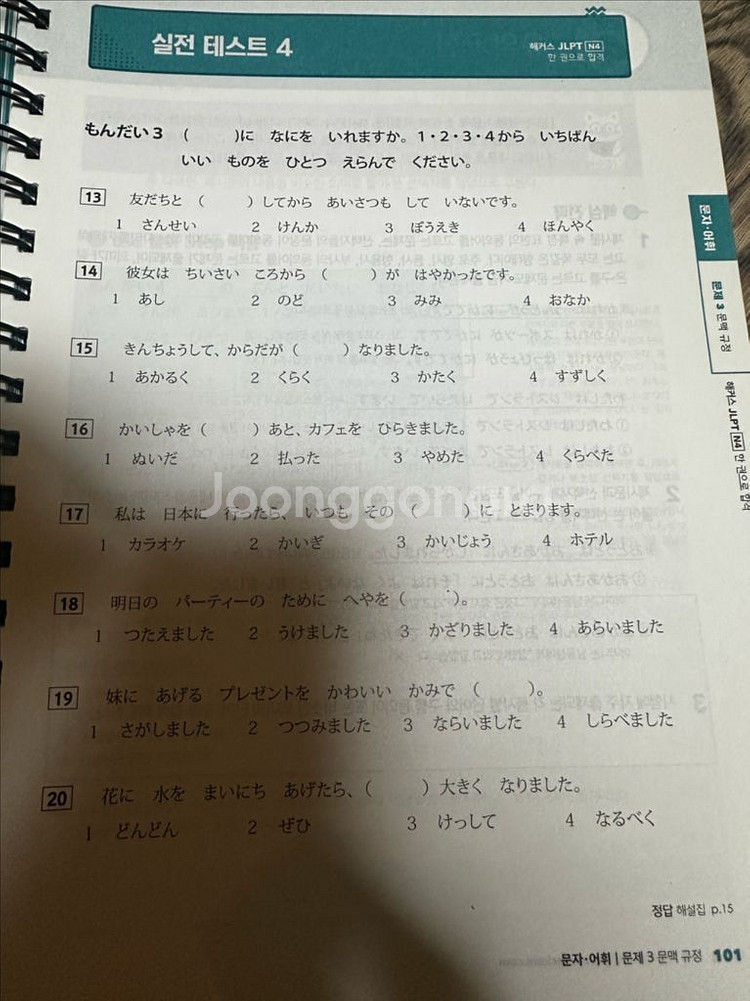 실전 테스트 4
해커스 JLPT N4
한 권으로 합격
もんだい3 (　　)に なにを いれますか。1・2・3・4から いちばん
いい ものを ひとつ えらんで ください。
13 友だちと (　　)してから あいさつも して いないです。
1 さんせい 2 けんか 3 ぼうえき 4 ほんやく
14 彼女は ちいさい ころから (　　)が はやかったです。
1 あし 2 のど 3 みみ 4 おなか
15 きんちょうして、からだが (　　)なりました。
1 あかるく 2 くらく 3 かたく 4 すずしく
16 かいしゃを (　　)あと、カフェを ひらきました。
1 ぬいだ 2 払った 3 やめた 4 くらべた
17 私は 日本に 行ったら、いつも その (　　)に とまります。
1 カラオケ 2 かいぎ 3 かいじょう 4 ホテル
18 明日の パーティーの ために へやを (　　)。
1 つたえました 2 うけました 3 かざりました 4 あらいました
19 妹に あげる プレゼントを かわいい かみで (　　)。
1 さがしました 2 つつみました 3 ならいました 4 しらべました
20 花に 水を まいにち あげたら、(　　)大きく なりました。
1 どんどん 2 ぜひ 3 けっして 4 なるべく
정답 해설집 p.15
문자·어휘 | 문제 3 문맥 규정 101
문자·어휘
문제 3 문맥 규정
해커스 JLPT N4 한 권으로 합격